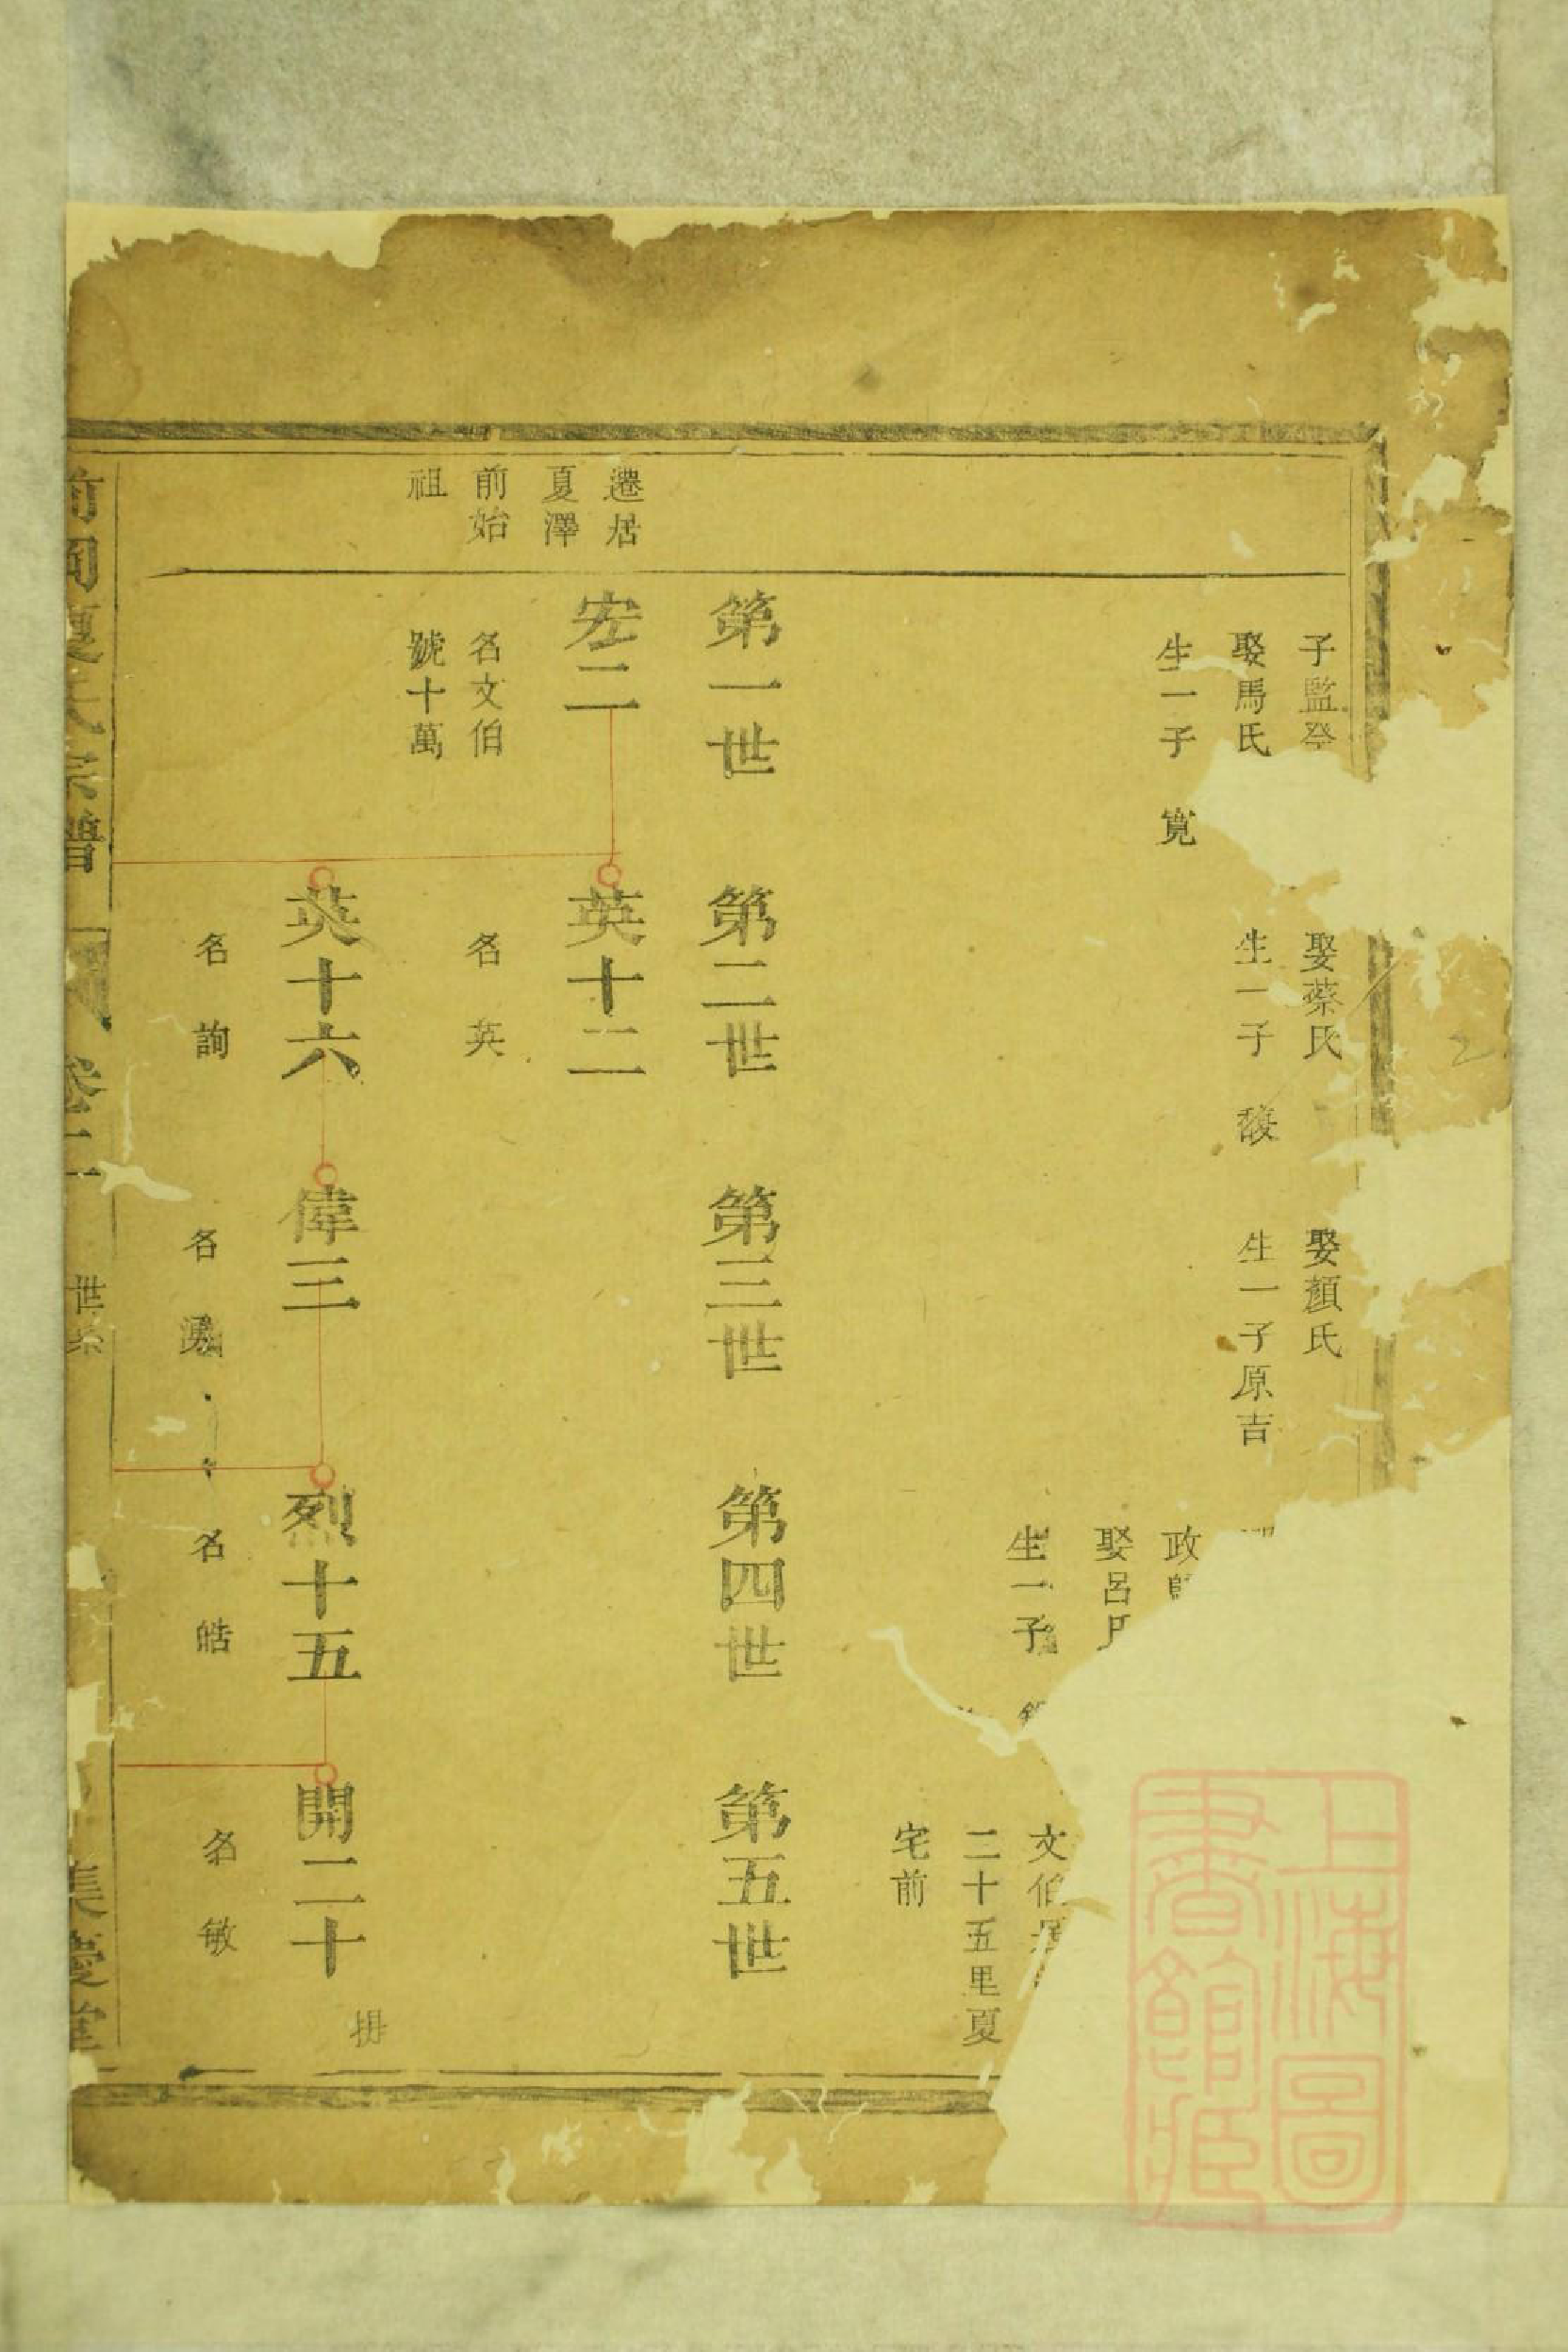 子監
娶馬氏
生一子 寬
娶蔡氏
生一子
娶顏氏
生一子原吉
政
娶呂
生一子
文伯
二十五里夏
宅前
第一世
第二世
第三世
第四世
第五世
遷居
夏澤
前始
祖
宏二
名文伯
號十萬
英十二
名英
英十六
名詢
偉三
名
烈十五
名皓
開二十
名敏
宗譜
卷二
世系
集慶堂
上海圖
書館藏